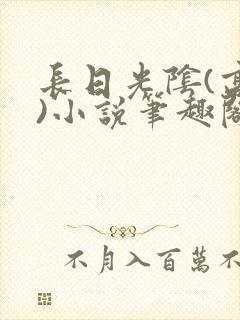 長日光陰(
)小說筆趣閣
不月入百萬不